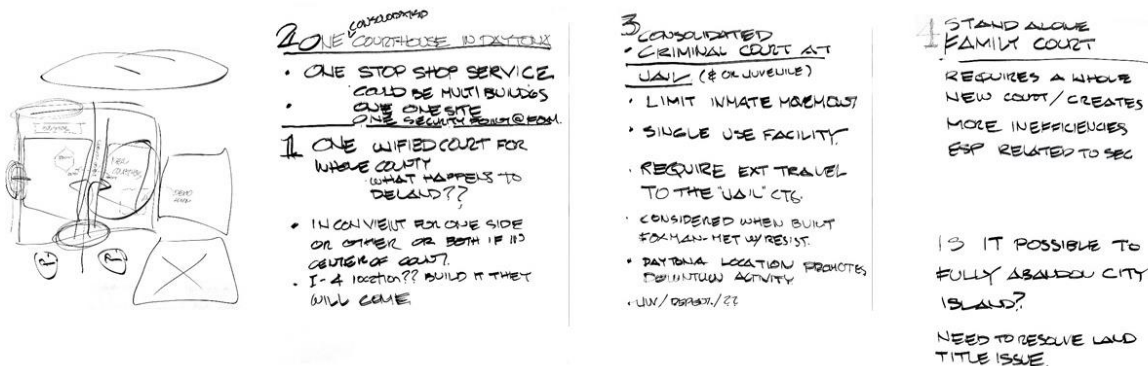 2 ONE CONSOLIDATED COURTHOUSE IN DAYTONA
• ONE STOP SHOP SERVICE
COULD BE MULTI BUILD'GS
• ONE ONE SITE
ONE SECURITY POINT @
1 ONE UNIFIED COURT FOR
WHOLE COUNTY
WHAT HAPPENS TO
DELAND??
• INCONVIENT FOR ONE SIDE
OR OTHER OR BOTH IF ITS
CENTER OF COUNT.
• I-4 location?? BUILD IT THEY
WILL COME
3 CONSOLIDATED
• CRIMINAL COURT AT
JAIL (& OR JUVENILE)
• LIMIT INMATE MOVEMENT
• SINGLE USE FACILITY.
• REQUIRE EXT TRAVEL
TO THE "JAIL" CTS.
• CONSIDERED WHEN BUILT
FOXMAN - MET W/ RESIST.
• DAYTONA LOCATION PROMOTES
DOWNTOWN ACTIVITY
4 STAND ALONE
FAMILY COURT
REQUIRES A WHOLE
NEW COURT/CREATES
MORE INEFFICIENCIES
ESP RELATED TO SEC
IS IT POSSIBLE TO
FULLY ABANDON CITY
ISLAND?
NEED TO RESOLVE LAND
TITLE ISSUE.